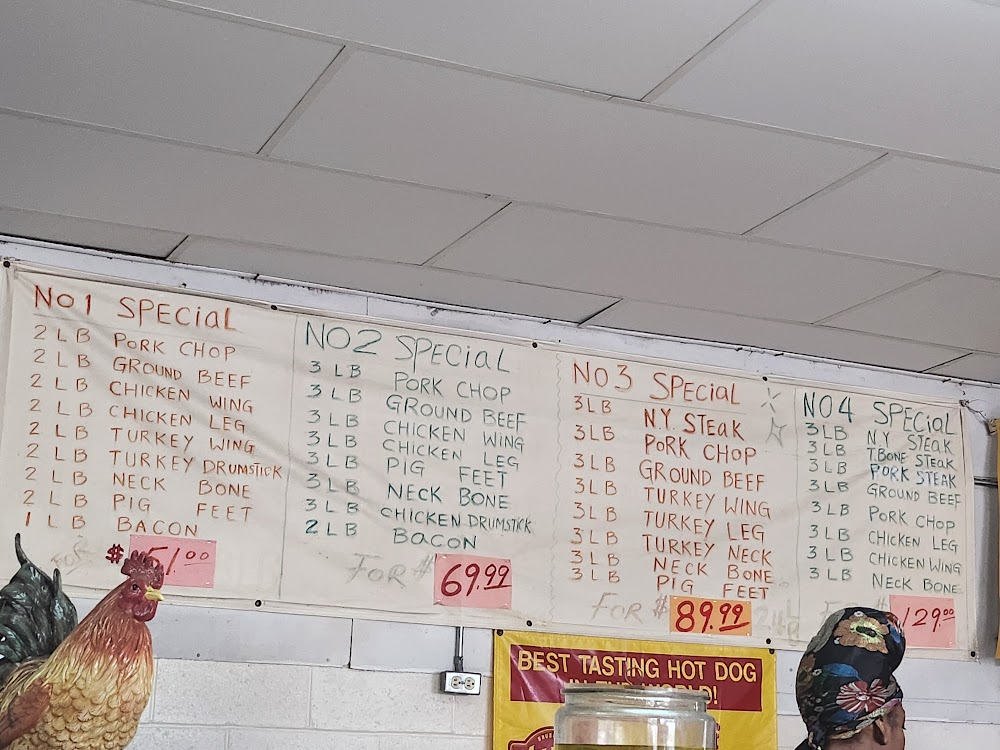 No 1 SPECiaL
2 LB PoRK CHOP
2 LB GROUND BEEF
2 LB CHICKEN WING
2 LB CHICKEN LEG
2 LB TURKEY WING
2 LB TURKEY DRUMSTICK
2 LB NECK BONE
2 LB PIG FEET
1 LB BACON
FOR $ 51.00
NO 2 SPECiaL
3 LB PORK CHOP
3 LB GROUND BEEF
3 LB CHICKEN WING
3 LB CHICKEN LEG
3 LB PIG FEET
3 LB NECK BONE
3 LB CHICKEN DRUMSTICK
2 LB BACON
FOR $ 69.99
NO 3 SPECiaL
3 LB N.Y. STEaK
3 LB PORK CHOP
3 LB GROUND BEEF
3 LB TURKEY WING
3 LB TURKEY LEG
3 LB TURKEY NECK
3 LB NECK BONE
3 LB PIG FEET
FOR $ 89.99
NO 4 SPECiaL
3 LB N.Y STEAK
3 LB T.BONE STEAK
3 LB PORK STEAK
3 LB GROUND BEEF
3 LB PORK CHOP
3 LB CHICKEN LEG
3 LB CHICKEN WING
3 LB NECK BONE
129.00
BEST TASTING HOT DOG
IN THE WORLD!